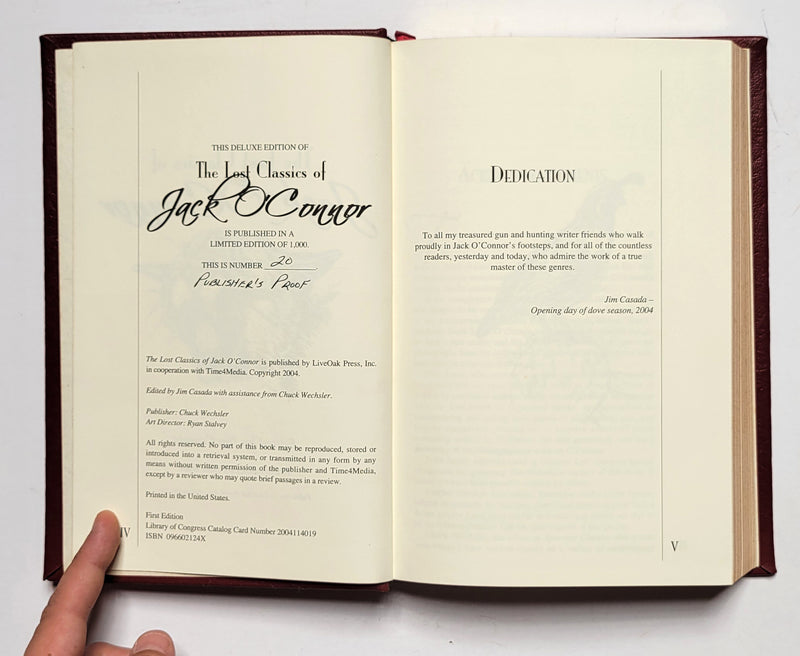 THIS DELUXE EDITION OF
The Lost Classics of
Jack O'Connor
IS PUBLISHED IN A
LIMITED EDITION OF 1,000.
THIS IS NUMBER 20.
PUBLISHER'S PROOF
The Lost Classics of Jack O'Connor is published by LiveOak Press, Inc.
in cooperation with Time4Media. Copyright 2004.
Edited by Jim Casada with assistance from Chuck Wechsler.
Publisher: Chuck Wechsler
Art Director: Ryan Stalvey
All rights reserved. No part of this book may be reproduced, stored or
introduced into a retrieval system, or transmitted in any form by any
means without written permission of the publisher and Time4Media,
except by a reviewer who may quote brief passages in a review.
Printed in the United States.
First Edition
Library of Congress Catalog Card Number 2004114019
ISBN 096602124X
IV
DEDICATION
To all my treasured gun and hunting writer friends who walk
proudly in Jack O'Connor's footsteps, and for all of the countless
readers, yesterday and today, who admire the work of a true
master of these genres.
Jim Casada –
Opening day of dove season, 2004
V